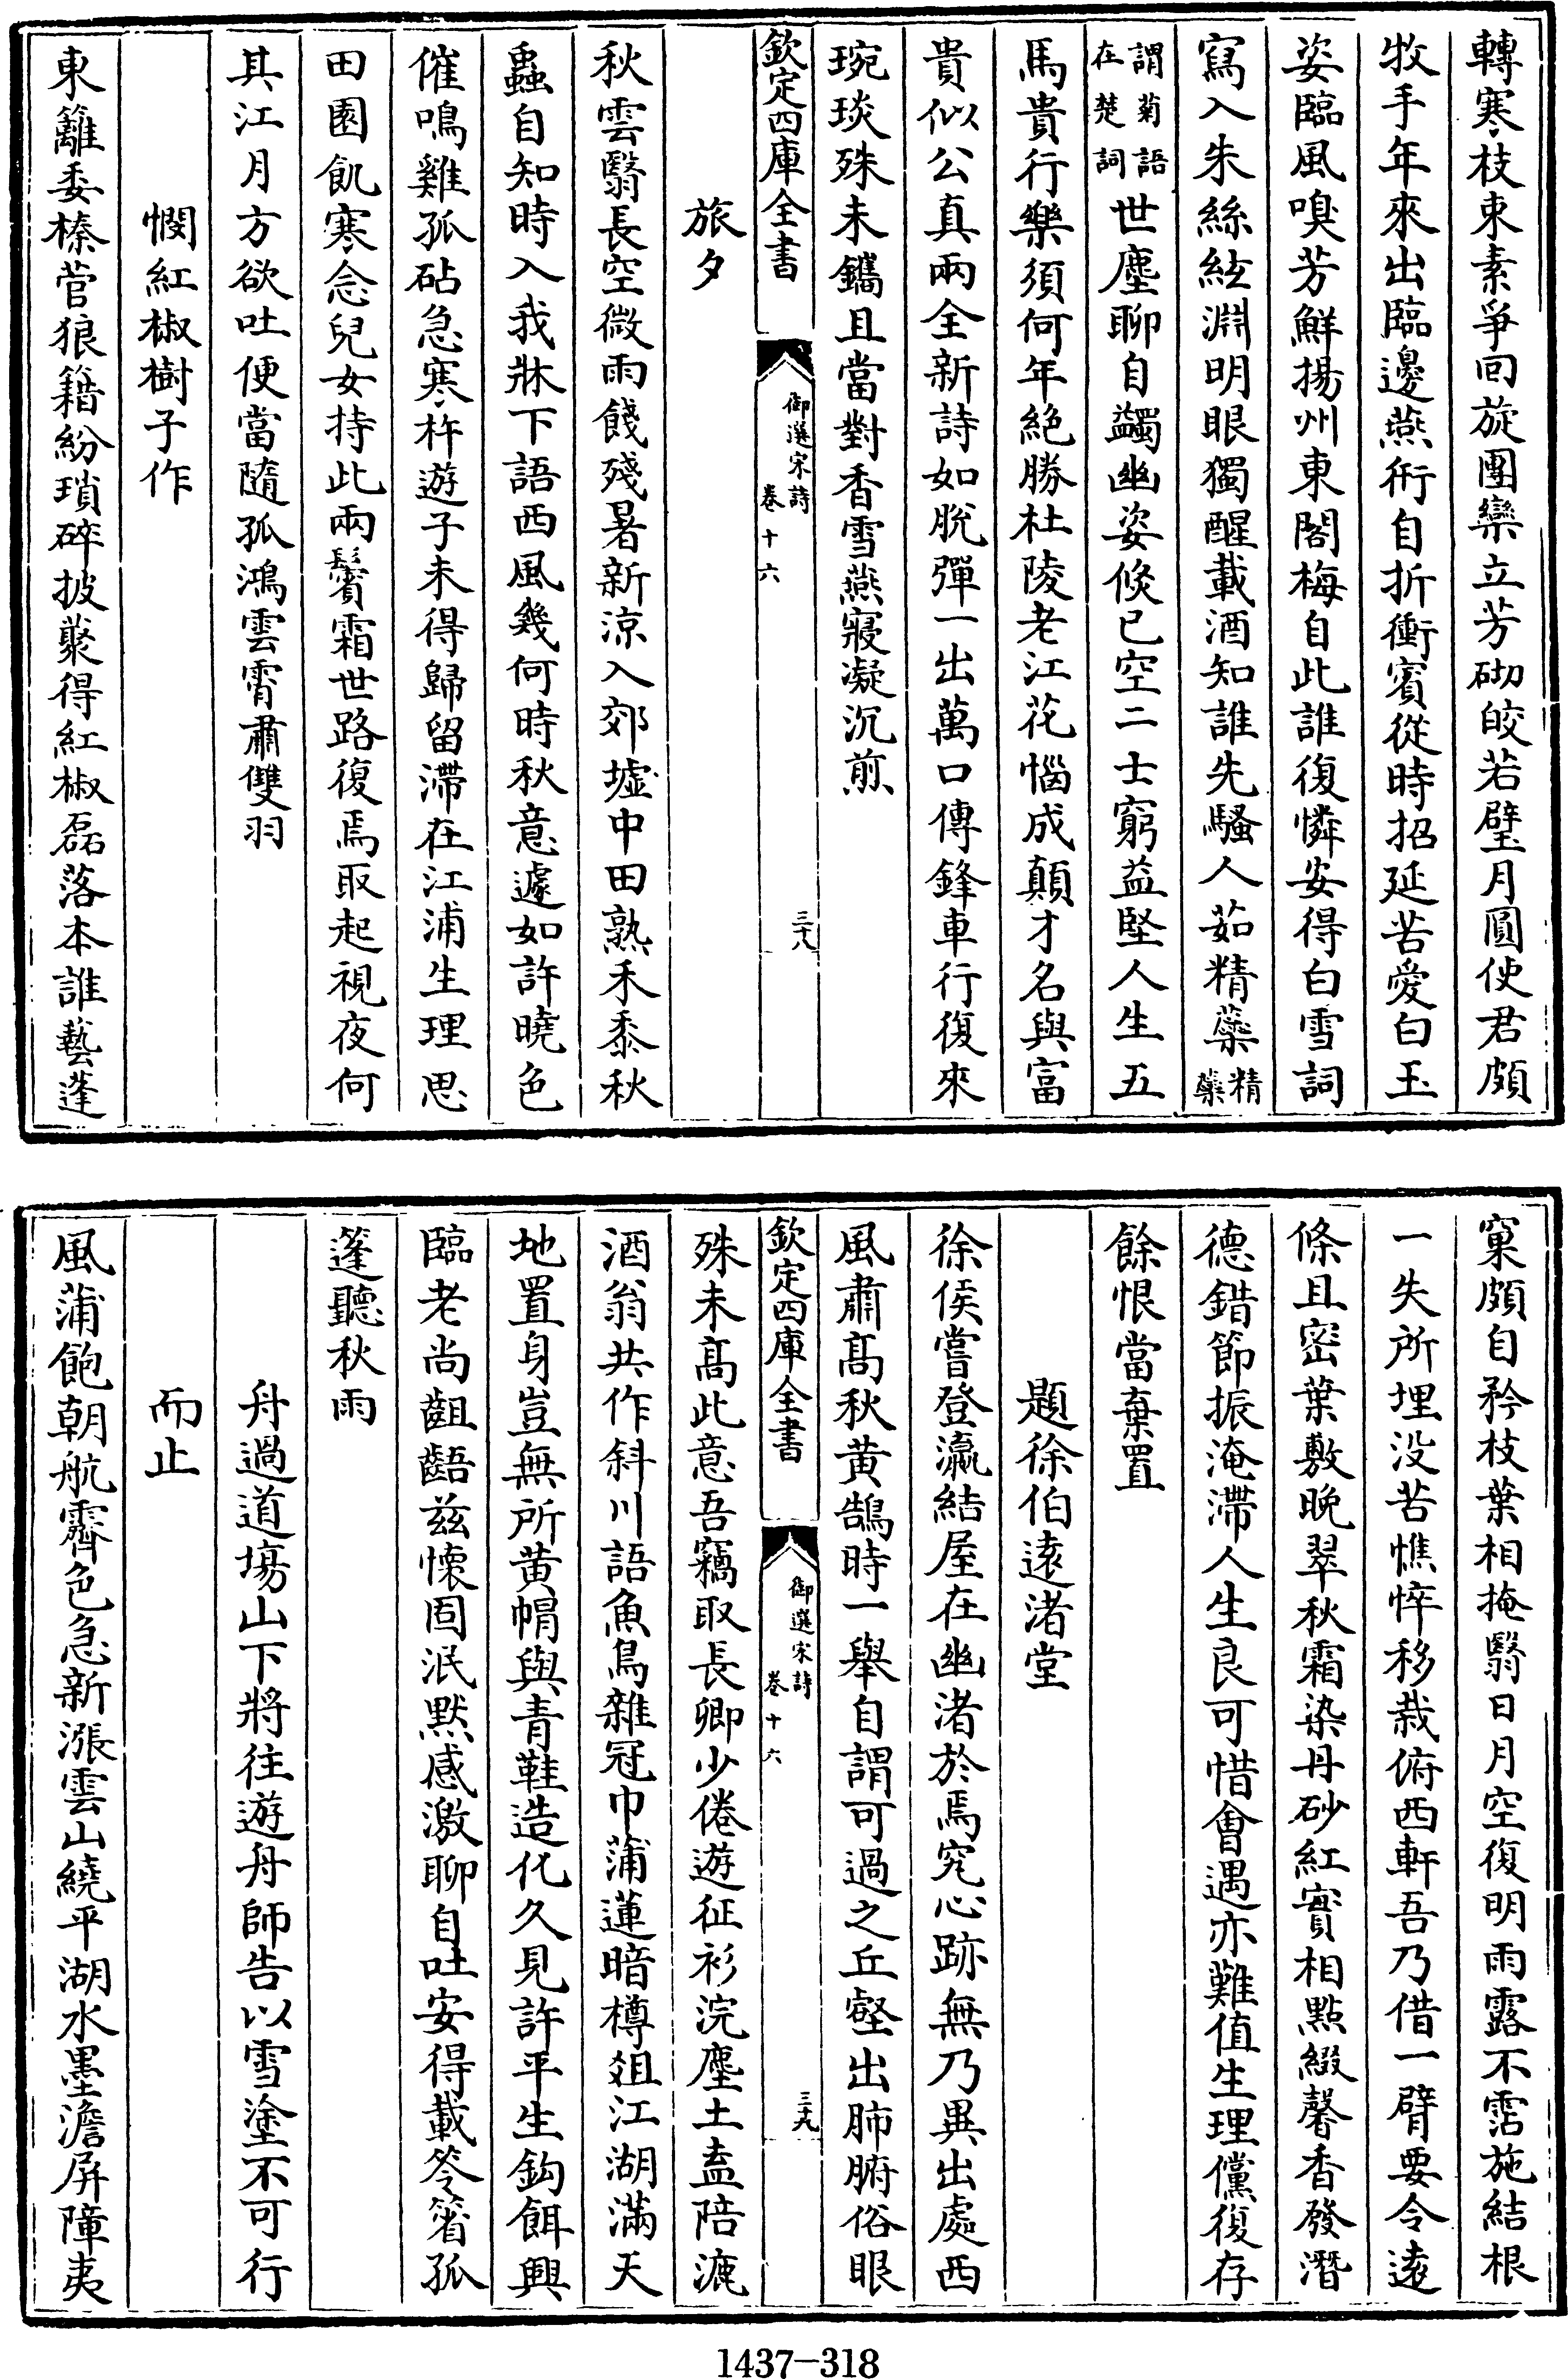 轉寒枝東素爭回旋團欒立芳砌皎若璧月圓使君頗
牧手年來出臨邊燕衎自折衝賓從時招延苦愛白玉
姿臨風嗅芳鮮揚州東閣梅自此誰復憐安得白雪詞
寫入朱絲絃淵明眼獨醒載酒知誰先騷人茹精蘂精蘂
謂菊語在楚詞世塵聊自蠲幽姿倏已空二士窮益堅人生五
馬貴行樂須何年絶勝杜陵老江花惱成顛才名與富
貴似公真兩全新詩如脫彈一出萬口傳鋒車行復來
琬琰殊未鐫且當對香雪燕寢凝沉煎
欽定四庫全書
御選宋詩
卷十六
三十八
旅夕
秋雲翳長空微雨餞殘暑新涼入郊墟中田熟禾黍秋
蟲自知時入我牀下語西風幾何時秋意遽如許曉色
催鳴雞孤砧急寒杵遊子未得歸留滯在江浦生理思
田園飢寒念兒女持此兩鬢霜世路復焉取起視夜何
其江月方欲吐便當隨孤鴻雲霄肅雙羽
憫紅椒樹子作
東籬委榛菅狼籍紛瑣碎披藂得紅椒磊落本誰藝蓬
窠頗自矜枝葉相掩翳日月空復明雨露不霑施結根
一失所埋没苦憔悴移栽俯西軒吾乃借一臂要令遠
條且密葉敷晚翠秋霜染丹砂紅實相點綴馨香發潛
德錯節振淹滯人生良可惜會遇亦難值生理儻復存
餘恨當棄置
題徐伯遠渚堂
徐侯嘗登瀛結屋在幽渚於焉究心跡無乃異出處西
風肅髙秋黄鵠時一舉自謂可過之丘壑出肺腑俗眼
欽定四庫全書
御選宋詩
卷十六
三十九
殊未髙此意吾竊取長卿少倦遊征衫浣塵土盍陪漉
酒翁共作斜川語魚鳥雜冠巾蒲蓮暗樽俎江湖滿天
地置身豈無所黄帽與青鞋造化久見許平生鈎餌興
臨老尚齟齬兹懷固泯默感激聊自吐安得載笭箵孤
篷聽秋雨
舟過道塲山下將往遊舟師告以雪塗不可行
而止
風蒲飽朝航霽色急新漲雲山繞平湖水墨澹屏障夷
1437-318